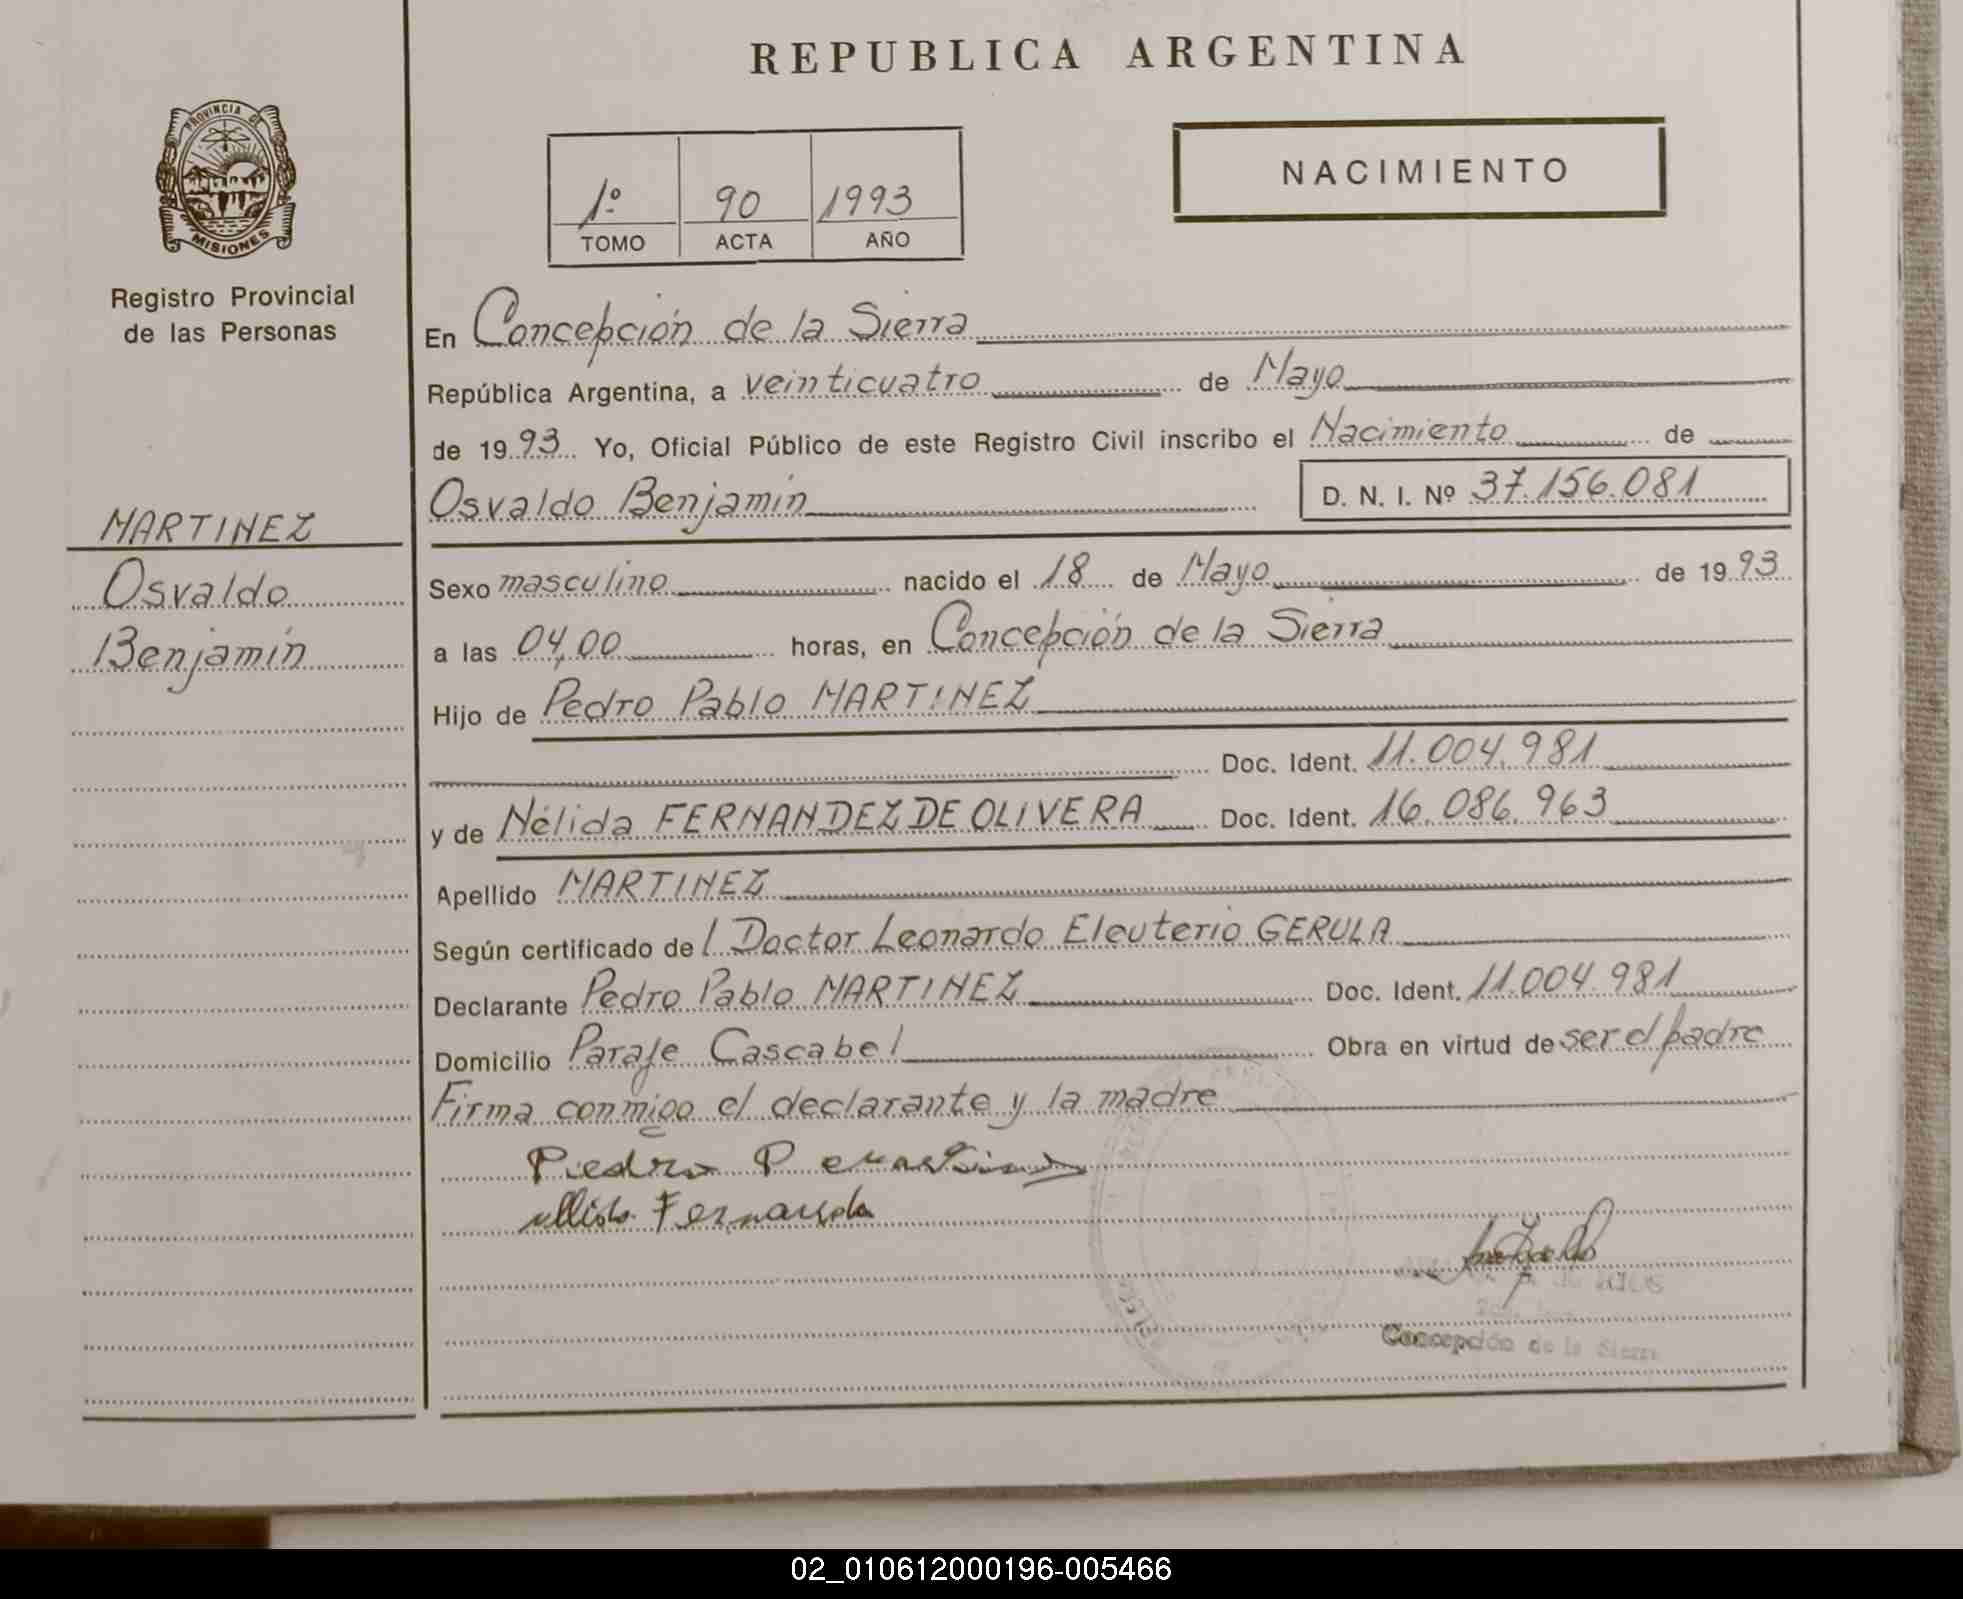 REPUBLICA ARGENTINA
PROVINCIA DE
MISIONES
Registro Provincial
de las Personas
NACIMIENTO
1º 90 1993
TOMO ACTA AÑO
En Concepción de la Sierra
República Argentina, a veinticuatro de Mayo
de 1993 Yo, Oficial Público de este Registro Civil inscribo el Nacimiento de
Osvaldo Benjamín D. N. I. Nº 37.156.081
MARTINEZ
Osvaldo
Benjamín
Sexo masculino nacido el 18 de Mayo de 1993
a las 04,00 horas, en Concepción de la Sierra
Hijo de Pedro Pablo MARTINEZ
Doc. Ident. 11.004.981
y de Nélida FERNANDEZ DE OLIVERA Doc. Ident. 16.086.963
Apellido MARTINEZ
Según certificado de l Doctor Leonardo Eleuterio GERULA
Declarante Pedro Pablo MARTINEZ Doc. Ident. 11.004.981
Domicilio Paraje Cascabel Obra en virtud de ser el padre
Firma conmigo el declarante y la madre
Concepción de la Sierra
02_010612000196-005466